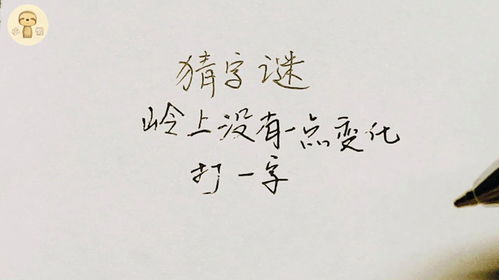 猜字谜
岭上没有一点变化
打一字